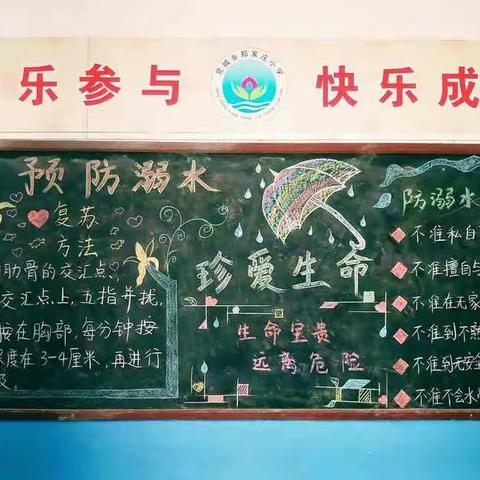 乐参与 快乐成
宫城乡郑家庄小学
预防溺水
复苏
方法
肋骨的交汇点、
交汇点上,五指并拢,
按在胸部,每分钟按
度在3-4厘米,再进行
珍爱生命
生命宝贵
远离危险
防溺水
不准私自
不准擅自与
不准在无家
不准到不熟
不准到无安全
不准不会水